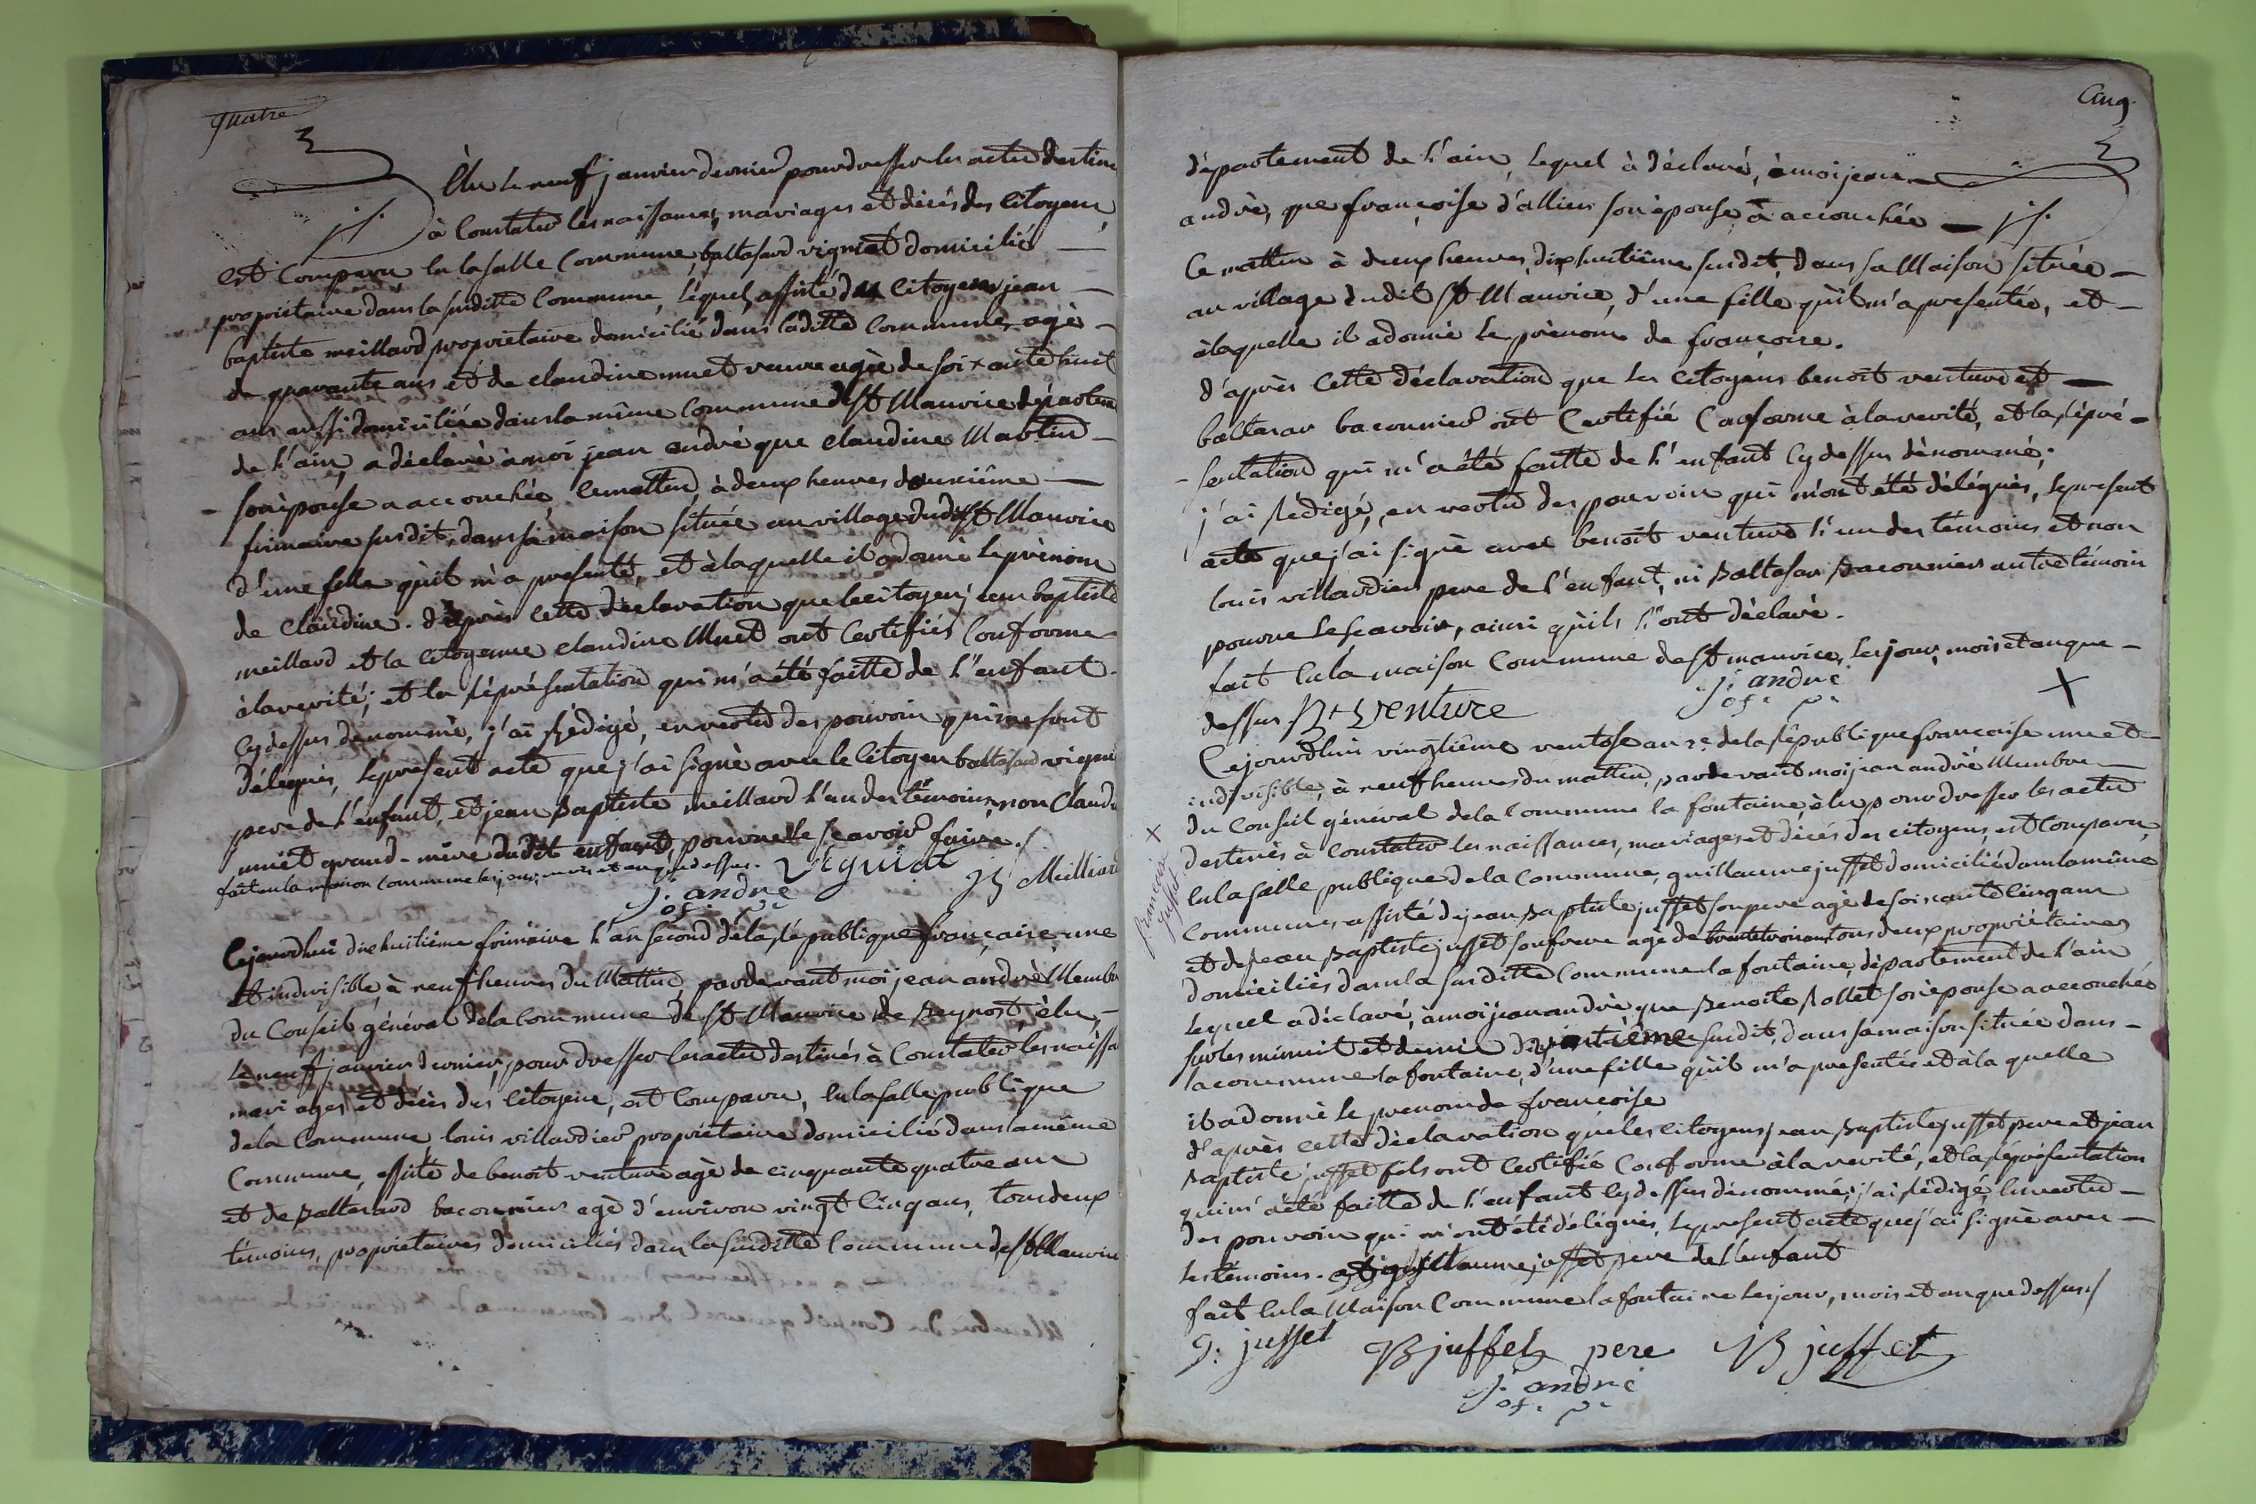 quatre
Élu le neuf janvier dernier pour dresser les actes destinés
à Constater les naissances, mariages et décès des Citoyens
est Comparu en la salle Commune baltasard vigniat domicilié
propriétaire dans la suditte Commune, lequel assisté du Citoyen jean
baptiste meillard propriétaire domicilié dans laditte Commune, agé
de quarante ans et de claudine muet veuve agée de soixante huit
ans aussi domiciliée dans la même Commune de St Maurice départem
de l'ain, a déclaré à moi jean andré que claudine Martin
son épouse a accouchée, ce mattin, à deux heures douxiême
frimaire susdit, dans sa maison située au village dudit St Maurice
d'une fille qu'il m'a presenté, et à laquelle il a donné le prénom
de claudine. d'après cette déclaration que le citoyen jean baptiste
meillard et la citoyenne claudine Muet ont Certifiés Conforme
à la verité, et la représentation qui m'a été faitte de l'enfant
cy dessus denommé, j'ai rédigé, en vertu des pouvoir qui me sont
délégués, le présent acte que j'ai signé avec le Citoyen baltasard vigni
pere de l'enfant, et jean Baptiste meillard l'un des témoins, non Claudi
muet grand-mère dudit enfant, pour ne le sçavoir faire./.
fait en la maison commune les jour, mois et an que dessus. Viguiat
J. andré JB Meilliard
of. p.
Cejourdhui dixhuitième frimaire l'an second de la république française, une
et indivisible, à neuf heures du Mattin, pardevant moi jean andré Membre
du Conseil général de la Commune de St Maurice de Beynost, élu,
le neuf janvier dernier, pour dresser les actes destinés à Constater les naissa
mariages et décès des Citoyens, est Comparu, en la salle publique
de la Commune louis villardier propriétaire domicilié dans la même
Commune, assisté de benoit venture agé de cinquante quatre ans
et de Baltasard baconnier agé d'environ vingt Cinq ans, tous deux
témoins, propriétaires domiciliés dans la suditte Commune de St Maurice
Cinq
département de l'ain, lequel à déclaré, à moi jean
andré, que françoise d'allier son épouse, à accouchée
Ce mattin à deux heures, dixhuitiême susdit, dans sa Maison située
au village dudit St Maurice, d'une fille qu'il m'a presentée, et
à laquelle il a donné le prénom de françoise.
d'après Cette déclaration que les citoyens benoit venture et
baltasar baconnier ont Certifié Conforme à la verité, et la répré-
-sentation qui m'a été faitte de l'enfant Cy dessus dénommé;
j'ai rédigé, en vertu des pouvoir qui m'ont été délégués, le present
acte que j'ai signé avec benoit venture l'un des témoins et non
louis villardier pere de l'enfant, ni Baltasar Baconnier autre témoin
pour ne le sçavoir, ainsi qu'ils l'ont déclaré.
fait en la maison Commune de St maurice, les jour, mois et an que
dessus Bt Venture J. andré
of. p.
X
Cejourdhui vingtiême ventose an 2e de la république française une et
indivisible, à neuf heures du mattin, pardevant moi jean andré Membre
du Conseil général de la Commune la fontaine, élu pour dresser les actes
destinés à Constater les naissances, mariages et décès des citoyens, est Comparu,
X
françoise
Jusset
en la salle publique de la Commune, guillaume jusset domicilié dans la même
Commune, assisté de jean Baptiste jusset son pere agé de soixante Cinq ans
et de jean Baptiste jusset son frere agé de trente trois ans tous deux propriétaires
domiciliés dans la suditte Commune la fontaine, département de l'ain
lequel a déclaré, à moi jean andré, que Benoite Rollet son épouse a accouchée
sur les minuit et demie dix susdit, dans sa maison située dans
la commune la fontaine, d'une fille qu'il m'a presentée et à la quelle
il a donné le prenom de françoise
d'après cette déclaration que les citoyens jean Baptiste jusset pere et jean
Baptiste jusset fils ont Certifié Conforme à la verité, et la réprésentation
qui m'a été faitte de l'enfant cy dessus dénommé; j'ai rédigé, en vertu
des pouvoir qui m'ont été délégués, le present acte que j'ai signé avec
les témoins. et guillaume jusset pere de l'enfant
fait en la Maison Commune la fontaine les jour, mois et an que dessus./
g. jusset JB jusset pere JB jusset
J. andré
of. p.